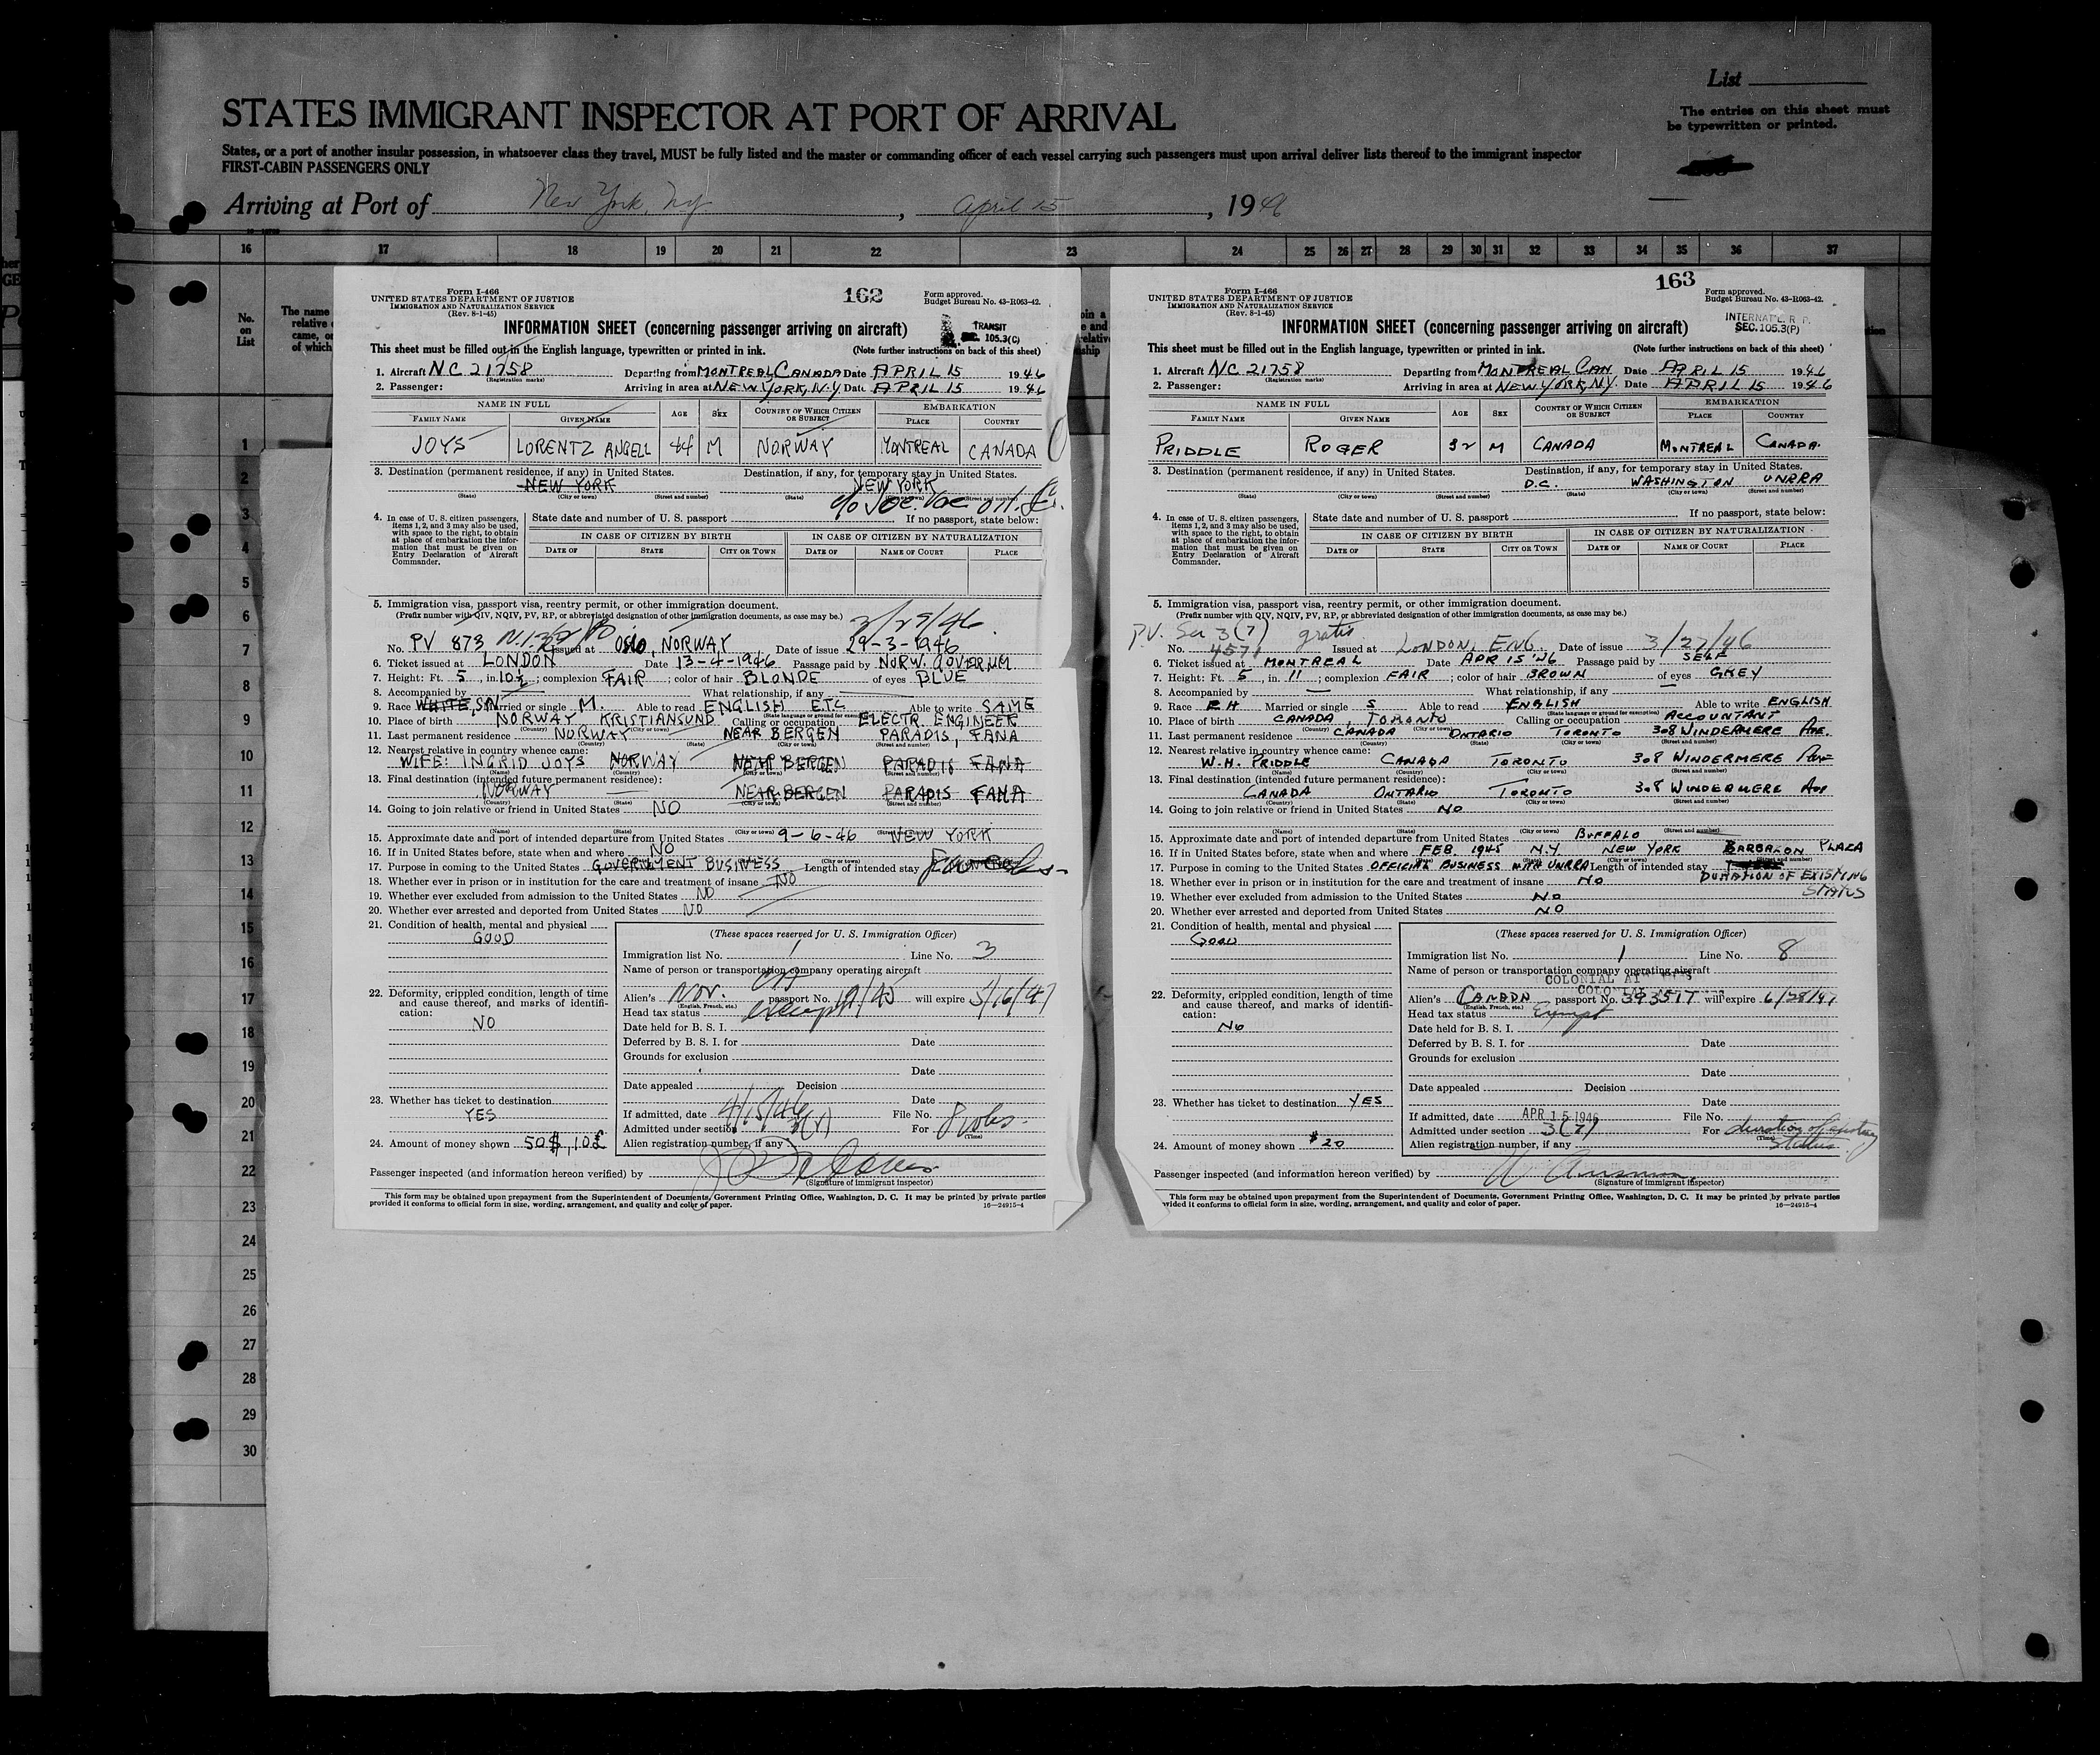 List
STATES IMMIGRANT INSPECTOR AT PORT OF ARRIVAL
The entries on this sheet must
be typewritten or printed.
States, or a port of another insular possession, in whatsoever class they travel, MUST be fully listed and the master or commanding officer of each vessel carrying such passengers must upon arrival deliver lists thereof to the immigrant inspector
FIRST-CABIN PASSENGERS ONLY
Arriving at Port of New York, Ny, April 15, 1946
16 17 18 19 20 21 22 23 24 25 26 27 28 29 30 31 32 33 34 35 36 37
No.
on
List
The name
relative
came, or
of which
1
2
3
4
5
6
7
8
9
10
11
12
13
14
15
16
17
18
19
20
21
22
23
24
25
26
27
28
29
30
Form I-466
UNITED STATES DEPARTMENT OF JUSTICE
IMMIGRATION AND NATURALIZATION SERVICE
(Rev. 8-1-45)
162
Form approved.
Budget Bureau No. 43-R063-42.
INFORMATION SHEET (concerning passenger arriving on aircraft)
TRANSIT
SEC. 105.3(C)
This sheet must be filled out in the English language, typewritten or printed in ink. (Note further instructions on back of this sheet)
1. Aircraft NC 21758 Departing from MONTREAL CANADA Date APRIL 15 1946
(Registration marks)
2. Passenger: Arriving in area at NEW YORK, N.Y. Date APRIL 15 1946
NAME IN FULL AGE SEX COUNTRY OF WHICH CITIZEN OR SUBJECT EMBARKATION
FAMILY NAME GIVEN NAME PLACE COUNTRY
JOYS LORENTZ ANGELL 44 M NORWAY MONTREAL CANADA
3. Destination (permanent residence, if any) in United States. Destination, if any, for temporary stay in United States.
NEW YORK NEW YORK
(State) (City or town) (Street and number) (State) (Street and number)
4. In case of U. S. citizen passengers, items 1, 2, and 3 may also be used, with space to the right, to obtain at place of embarkation the information that must be given on Entry Declaration of Aircraft Commander.
State date and number of U. S. passport If no passport, state below:
IN CASE OF CITIZEN BY BIRTH IN CASE OF CITIZEN BY NATURALIZATION
DATE OF STATE CITY OR TOWN DATE OF NAME OF COURT PLACE
5. Immigration visa, passport visa, reentry permit, or other immigration document.
(Prefix number with QIV, NQIV, PV, RP, or abbreviated designation of other immigration documents, as case may be.) 3/29/46
No. PV 873 Issued at OSLO, NORWAY Date of issue 29-3-1946
6. Ticket issued at LONDON Date 13-4-1946 Passage paid by NORW. GOVERNM
7. Height: Ft. 5, in. 10½; complexion FAIR; color of hair BLONDE of eyes BLUE
8. Accompanied by What relationship, if any
9. Race WHITE, SN. Married or single M. Able to read ENGLISH ETC Able to write SAME
(State language or ground for exemption)
10. Place of birth NORWAY KRISTIANSUND Calling or occupation ELECTR. ENGINEER
(Country) (City or town)
11. Last permanent residence NORWAY NEAR BERGEN PARADIS, FANA
(Country) (State) (City or town) (Street and number)
12. Nearest relative in country whence came:
WIFE: INGRID JOYS NORWAY NEAR BERGEN PARADIS FANA
(Name) (Country) (City or town) (Street and number)
13. Final destination (intended future permanent residence):
NORWAY NEAR BERGEN PARADIS FANA
(Country) (State) (City or town) (Street and number)
14. Going to join relative or friend in United States NO
(Name) (State) (City or town)
15. Approximate date and port of intended departure from United States 9-6-46 NEW YORK
16. If in United States before, state when and where NO
(City or town)
17. Purpose in coming to the United States GOVERNMENT BUSINESS Length of intended stay
18. Whether ever in prison or in institution for the care and treatment of insane NO
19. Whether ever excluded from admission to the United States NO
20. Whether ever arrested and deported from United States NO
21. Condition of health, mental and physical
GOOD
22. Deformity, crippled condition, length of time and cause thereof, and marks of identification:
NO
23. Whether has ticket to destination
YES
24. Amount of money shown 50$, 10£
(These spaces reserved for U. S. Immigration Officer)
Immigration list No. 1 Line No. 3
Name of person or transportation company operating aircraft
Alien's Nor. passport No. will expire 3/16/47
(English, French, etc.)
Head tax status exempt
Date held for B. S. I.
Deferred by B. S. I. for Date
Grounds for exclusion
Date
Date appealed Decision
Date
If admitted, date 4/15/46 File No.
Admitted under section For 8 wks.
(Time)
Alien registration number, if any
Passenger inspected (and information hereon verified) by
(Signature of immigrant inspector)
This form may be obtained upon prepayment from the Superintendent of Documents, Government Printing Office, Washington, D. C. It may be printed by private parties
provided it conforms to official form in size, wording, arrangement, and quality and color of paper.
16—24915-4
Form I-466
UNITED STATES DEPARTMENT OF JUSTICE
IMMIGRATION AND NATURALIZATION SERVICE
(Rev. 8-1-45)
163
Form approved.
Budget Bureau No. 43-R063-42.
INFORMATION SHEET (concerning passenger arriving on aircraft)
SEC. 105.3(P)
This sheet must be filled out in the English language, typewritten or printed in ink. (Note further instructions on back of this sheet)
1. Aircraft NC 21758 Departing from MONTREAL CAN Date APRIL 15 1946
(Registration marks)
2. Passenger: Arriving in area at NEW YORK, NY. Date APRIL 15 1946
NAME IN FULL AGE SEX COUNTRY OF WHICH CITIZEN OR SUBJECT EMBARKATION
FAMILY NAME GIVEN NAME PLACE COUNTRY
PRIDDLE ROGER 32 M CANADA MONTREAL CANADA.
3. Destination (permanent residence, if any) in United States. Destination, if any, for temporary stay in United States.
D.C. WASHINGTON UNRRA
(State) (City or town) (Street and number) (State) (City or town) (Street and number)
4. In case of U. S. citizen passengers, items 1, 2, and 3 may also be used, with space to the right, to obtain at place of embarkation the information that must be given on Entry Declaration of Aircraft Commander.
State date and number of U. S. passport If no passport, state below:
IN CASE OF CITIZEN BY BIRTH IN CASE OF CITIZEN BY NATURALIZATION
DATE OF STATE CITY OR TOWN DATE OF NAME OF COURT PLACE
5. Immigration visa, passport visa, reentry permit, or other immigration document.
(Prefix number with QIV, NQIV, PV, RP, or abbreviated designation of other immigration documents, as case may be.)
P.V. Sec 3(7) gratis
No. 4571 Issued at LONDON, ENG Date of issue 3/27/46
6. Ticket issued at MONTREAL Date APR 15 '46 Passage paid by SELF
7. Height: Ft. 5, in. 11; complexion FAIR; color of hair BROWN of eyes GREY
8. Accompanied by — What relationship, if any —
9. Race EH Married or single S Able to read ENGLISH Able to write ENGLISH
(State language or ground for exemption)
10. Place of birth CANADA, TORONTO Calling or occupation ACCOUNTANT
(Country) (City or town)
11. Last permanent residence CANADA ONTARIO TORONTO 308 WINDERMERE AVE.
(Country) (State) (City or town) (Street and number)
12. Nearest relative in country whence came:
W.H. PRIDDLE CANADA TORONTO 308 WINDERMERE AVE
(Name) (Country) (City or town) (Street and number)
13. Final destination (intended future permanent residence):
CANADA ONTARIO TORONTO 308 WINDERMERE AVE
(Country) (State) (City or town) (Street and number)
14. Going to join relative or friend in United States NO
(Name) (State) (City or town) (Street and number)
15. Approximate date and port of intended departure from United States BUFFALO
16. If in United States before, state when and where FEB 1945 N.Y NEW YORK BARBAZON PLAZA
(State) (City or town) (Street and number)
17. Purpose in coming to the United States OFFICIAL BUSINESS WITH UNRRA Length of intended stay
DURATION OF EXISTING STATUS
18. Whether ever in prison or in institution for the care and treatment of insane NO
19. Whether ever excluded from admission to the United States NO
20. Whether ever arrested and deported from United States NO
21. Condition of health, mental and physical
GOOD
22. Deformity, crippled condition, length of time and cause thereof, and marks of identification:
NO
23. Whether has ticket to destination YES
24. Amount of money shown $20
(These spaces reserved for U. S. Immigration Officer)
Immigration list No. 1 Line No. 8
Name of person or transportation company operating aircraft
COLONIAL
Alien's CANADN passport No. 393517 will expire 6/28/47
(English, French, etc.)
Head tax status Exempt
Date held for B. S. I.
Deferred by B. S. I. for Date
Grounds for exclusion
Date
Date appealed Decision
Date
If admitted, date APR 15 1946 File No.
Admitted under section 3(7) For duration of existing status
(Time)
Alien registration number, if any
Passenger inspected (and information hereon verified) by
(Signature of immigrant inspector)
This form may be obtained upon prepayment from the Superintendent of Documents, Government Printing Office, Washington, D. C. It may be printed by private parties
provided it conforms to official form in size, wording, arrangement, and quality and color of paper.
16—24915-4